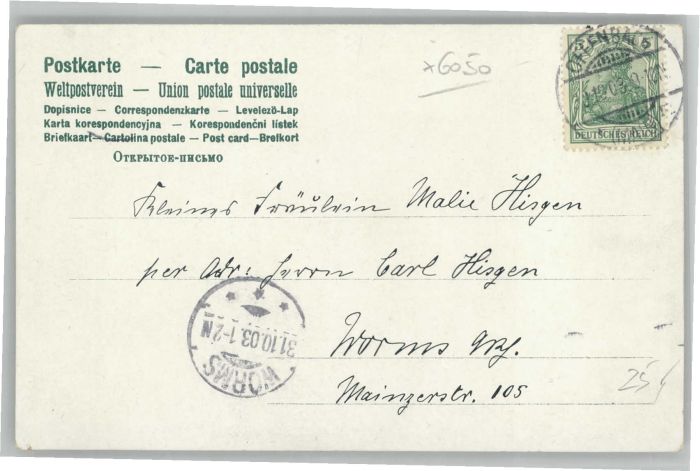 Postkarte — Carte postale
Weltpostverein — Union postale universelle
Dopisnice — Correspondenzkarte — Levelezö-Lap
Karta korespondencyjna — Korespondenční lístek
Briefkaart — Cartolina postale — Post card — Brefkort
Открытое-письмо
x6050
DEUTSCHES REICH
Kleines Fräulein Malie Hisgen
per Adr: Herrn Carl Hisgen
Worms
Mainzerstr. 105
31.10.03.1-2N
WORMS
25